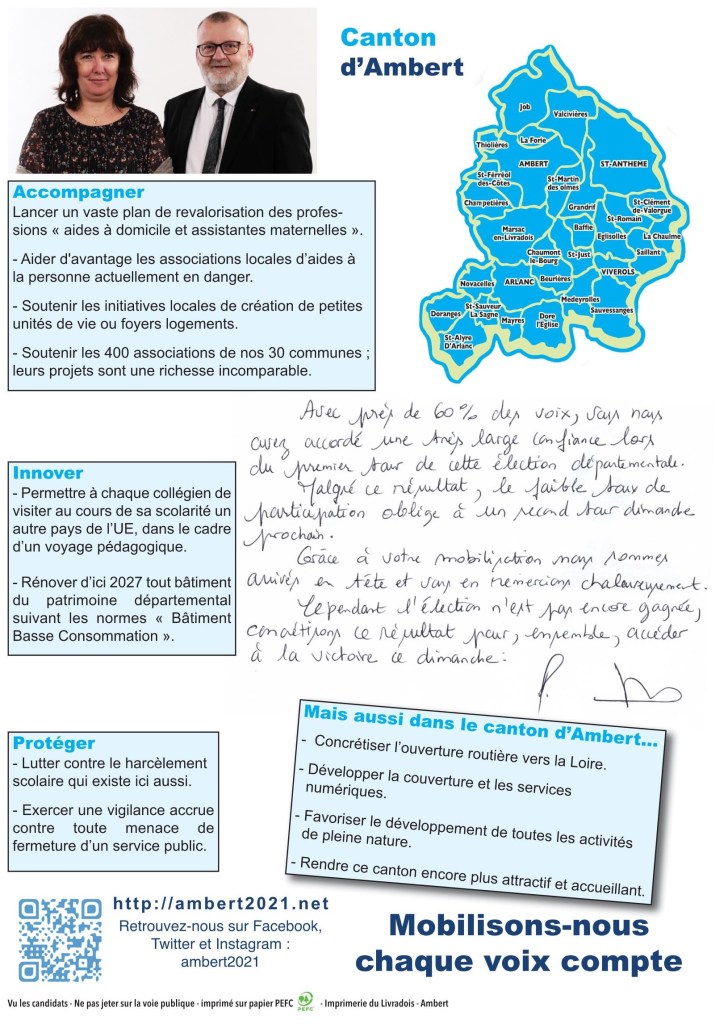 Canton
d'Ambert
Job
Valcivières
Thiolières
La Forie
AMBERT
ST-ANTHEME
St-Férréol
des-Côtes
St-Martin
des olmes
Champetières
Grandrif
St-Clément
de-Valorgue
St-Romain
Marsac
en-Livradois
Baffie
Eglisolles
La Chaulme
Chaumont
le-Bourg
St-Just
Saillant
VIVEROLS
Novacelles
ARLANC
Beurières
Medeyrolles
St-Sauveur
La Sagne
Doranges
Mayres
Dore
l'Eglise
Sauvessanges
St-Alyre
D'Arlanc
Accompagner
Lancer un vaste plan de revalorisation des profes-
sions « aides à domicile et assistantes maternelles ».
- Aider d'avantage les associations locales d'aides à
la personne actuellement en danger.
- Soutenir les initiatives locales de création de petites
unités de vie ou foyers logements.
- Soutenir les 400 associations de nos 30 communes ;
leurs projets sont une richesse incomparable.
Avec près de 60% des voix, vous nous
avez accordé une très large confiance lors
du premier tour de cette élection départementale.
Malgré ce résultat, le faible taux de
participation oblige à un second tour dimanche
prochain.
Grâce à votre mobilisation nous sommes
arrivés en tête et vous en remercions chaleureusement.
Cependant l'élection n'est pas encore gagnée,
concrétisons ce résultat pour, ensemble, accéder
à la victoire ce dimanche.
Innover
- Permettre à chaque collégien de
visiter au cours de sa scolarité un
autre pays de l'UE, dans le cadre
d'un voyage pédagogique.
- Rénover d'ici 2027 tout bâtiment
du patrimoine départemental
suivant les normes « Bâtiment
Basse Consommation ».
Protéger
- Lutter contre le harcèlement
scolaire qui existe ici aussi.
- Exercer une vigilance accrue
contre toute menace de
fermeture d'un service public.
Mais aussi dans le canton d'Ambert...
- Concrétiser l'ouverture routière vers la Loire.
- Développer la couverture et les services
numériques.
- Favoriser le développement de toutes les activités
de pleine nature.
- Rendre ce canton encore plus attractif et accueillant.
http://ambert2021.net
Retrouvez-nous sur Facebook,
Twitter et Instagram :
ambert2021
Mobilisons-nous
chaque voix compte
Vu les candidats - Ne pas jeter sur la voie publique - imprimé sur papier PEFC PEFC - Imprimerie du Livradois - Ambert